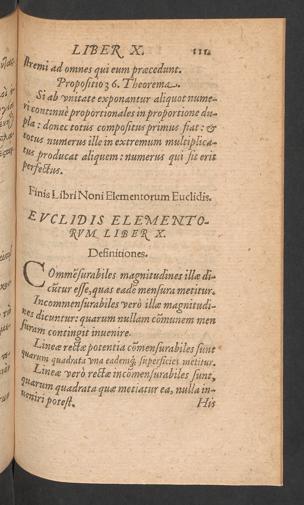 LIBER X. 111.
stremi ad omnes qui eum præcedunt.
Propositio 36. Theorema.
Si ab vnitate exponantur aliquot nume-
ri continuè proportionales in proportione du-
pla: donec totus compositus primus fiat: &
totus numerus ille in extremum multiplica-
tus producat aliquem: numerus qui fit erit
perfectus.
Finis Libri Noni Elementorum Euclidis.
EVCLIDIS ELEMENTO-
RVM LIBER X.
Definitiones.
COmmẽsurabiles magnitudines illæ di-
cũtur esse, quas eadẽ mensura metitur.
Incommensurabiles verò illæ magnitudi-
nes dicuntur: quarum nullam cõmunem men
suram contingit inuenire.
Lineæ rectæ potentia cõmensurabiles sunt
quarum quadrata vna eademq́; superficies metitur.
Lineæ verò rectæ incõmensurabiles sunt,
quarum quadrata quæ metiatur ea, nulla in-
ueniri potest. His